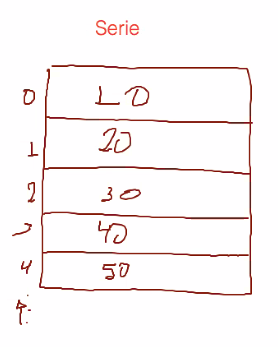 Serie
0 10
1 20
2 30
3 40
4 50